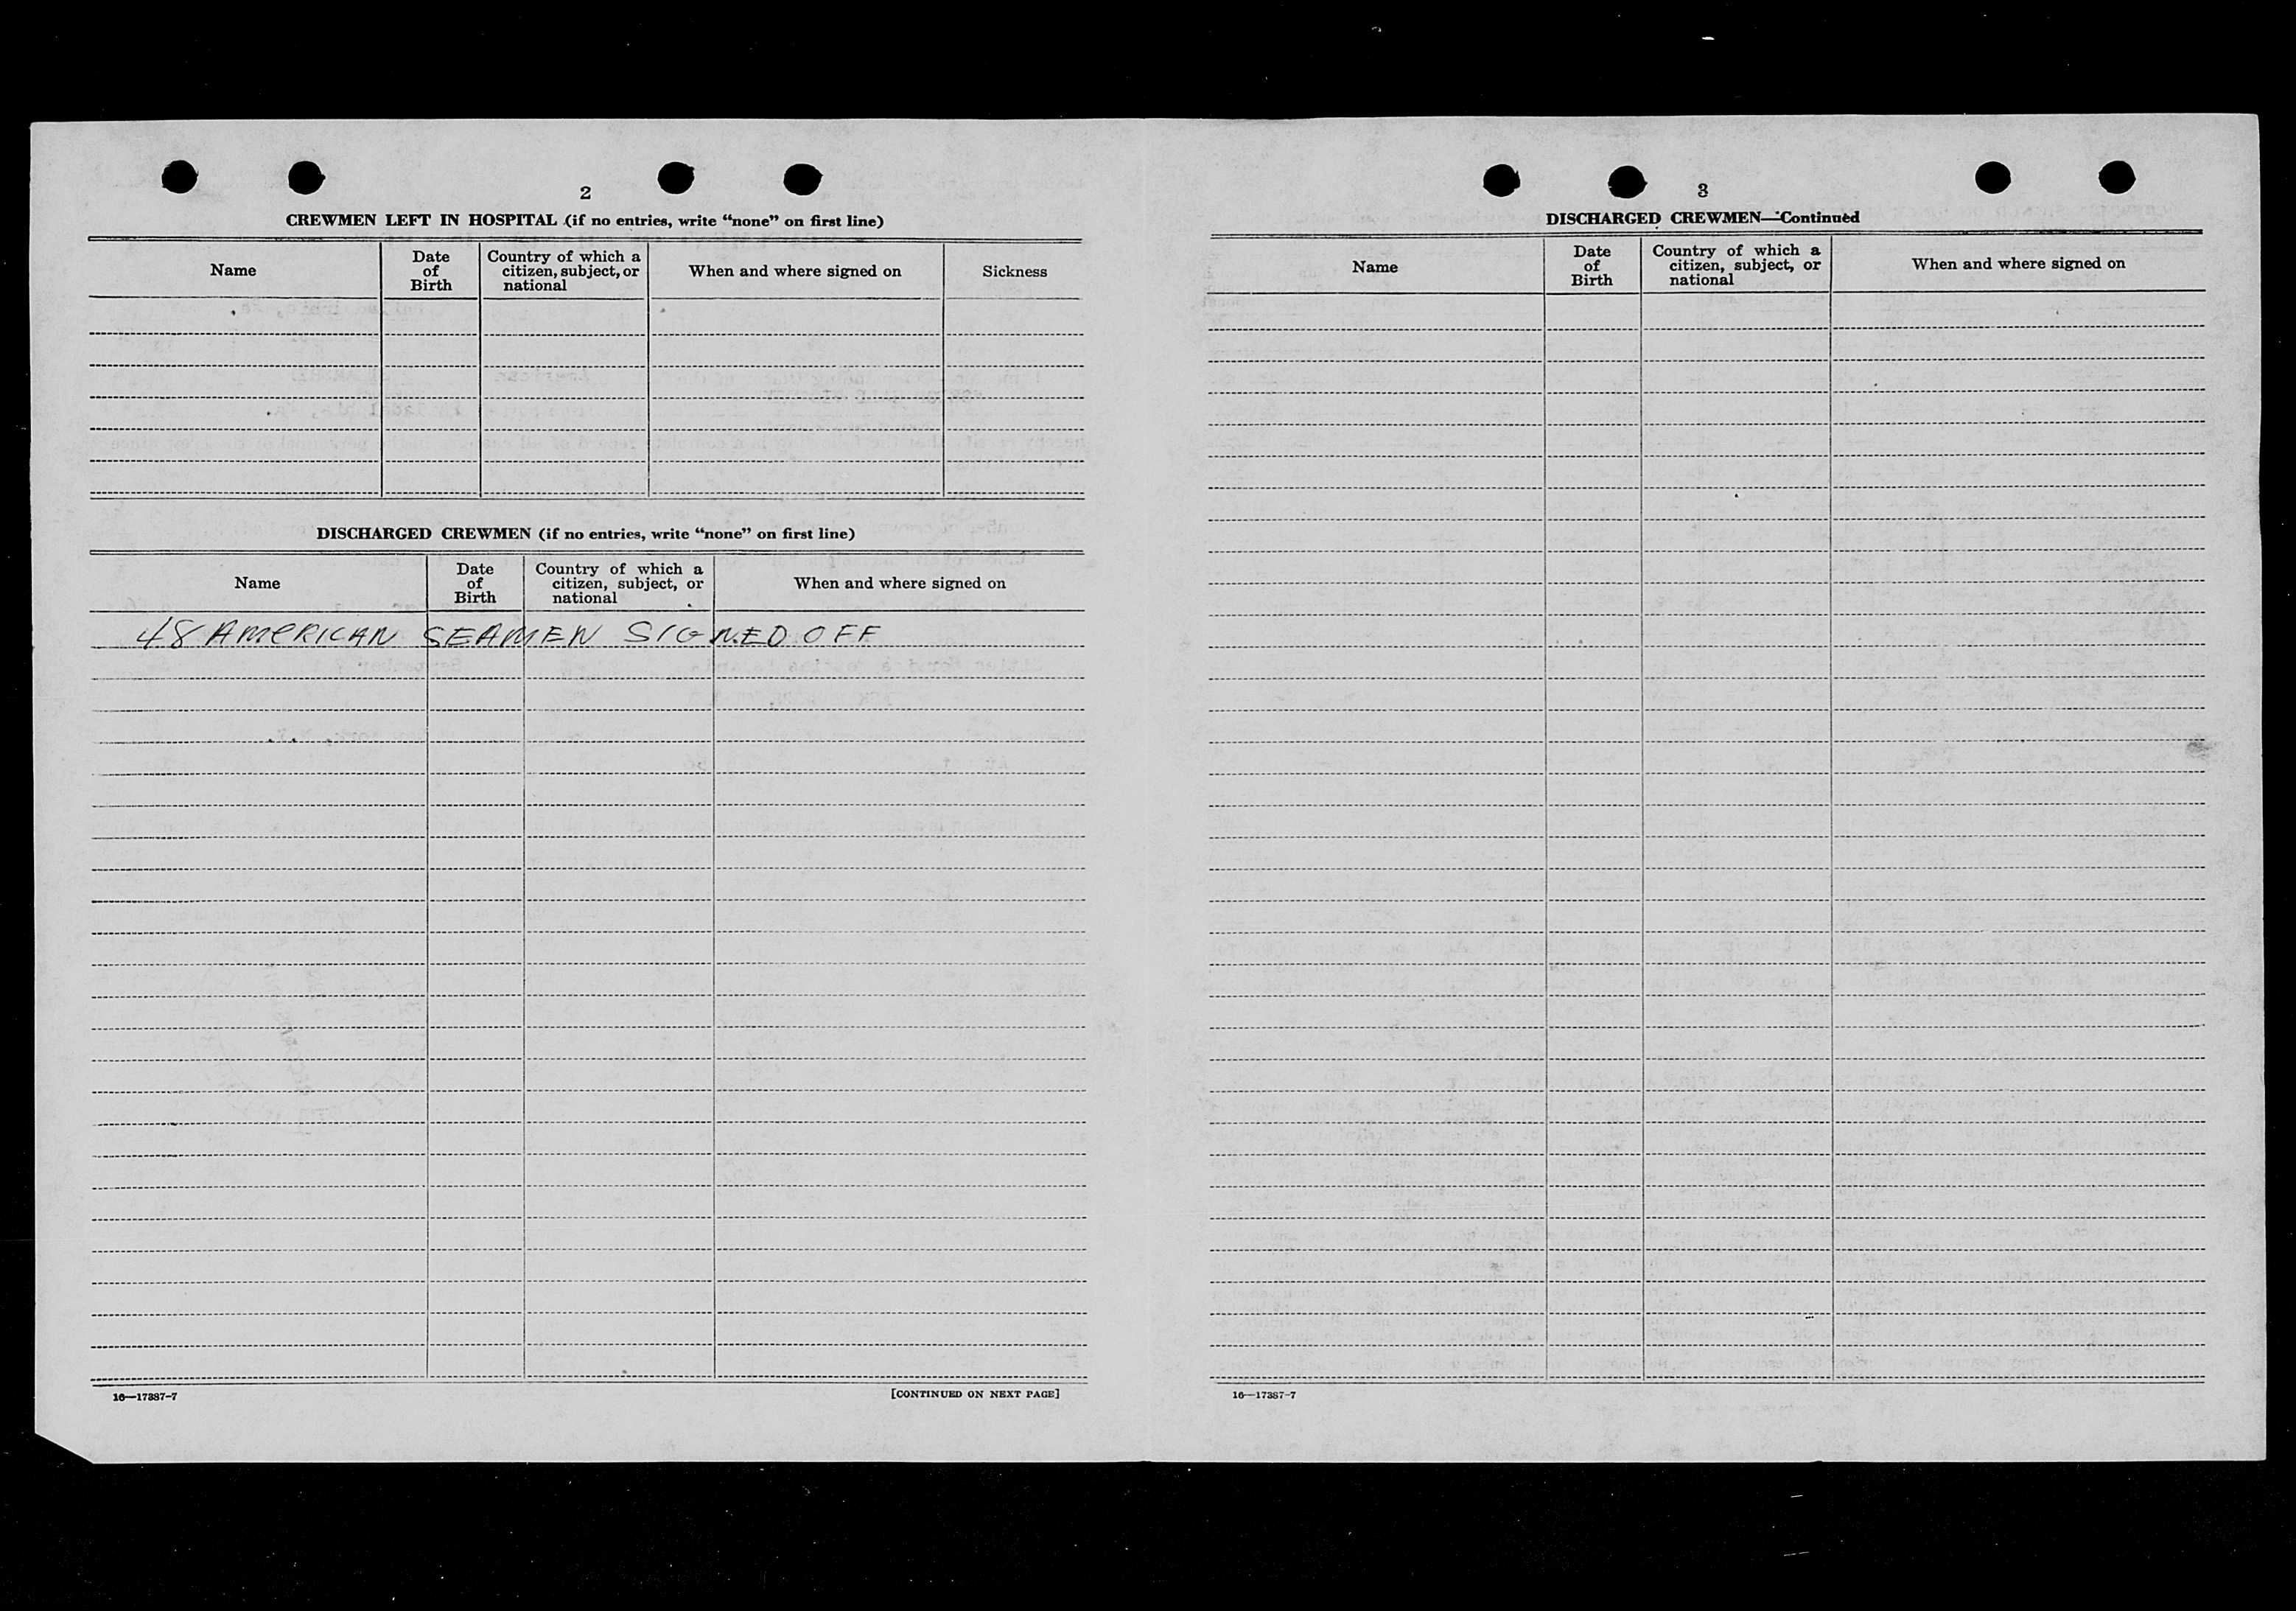 2
CREWMEN LEFT IN HOSPITAL (if no entries, write “none” on first line)
Name
Date of Birth
Country of which a citizen, subject, or national
When and where signed on
Sickness
DISCHARGED CREWMEN (if no entries, write “none” on first line)
Name
Date of Birth
Country of which a citizen, subject, or national
When and where signed on
48 AMERICAN SEAMEN SIGNED OFF
16—17387-7
[CONTINUED ON NEXT PAGE]
3
DISCHARGED CREWMEN—Continued
Name
Date of Birth
Country of which a citizen, subject, or national
When and where signed on
16—17387-7